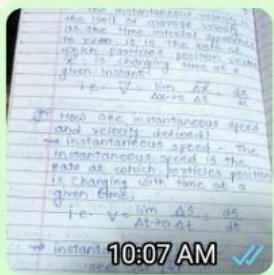 The instantaneous velocity
the limit of average velocity
as the time interval approaches
to zero, it is the rate of
which particle's position vector
is changing time at a
given instant
i.e. V = lim Δx→0 Δx/Δt = dx/dt
How are instantaneous speed
and velocity defined?
→ instantaneous speed - The
instantaneous speed is the
rate at which particles position
is changing with time at a
given time,
i.e. V = lim Δt→0 Δs/Δt = ds/dt
→ instant
10:07 AM